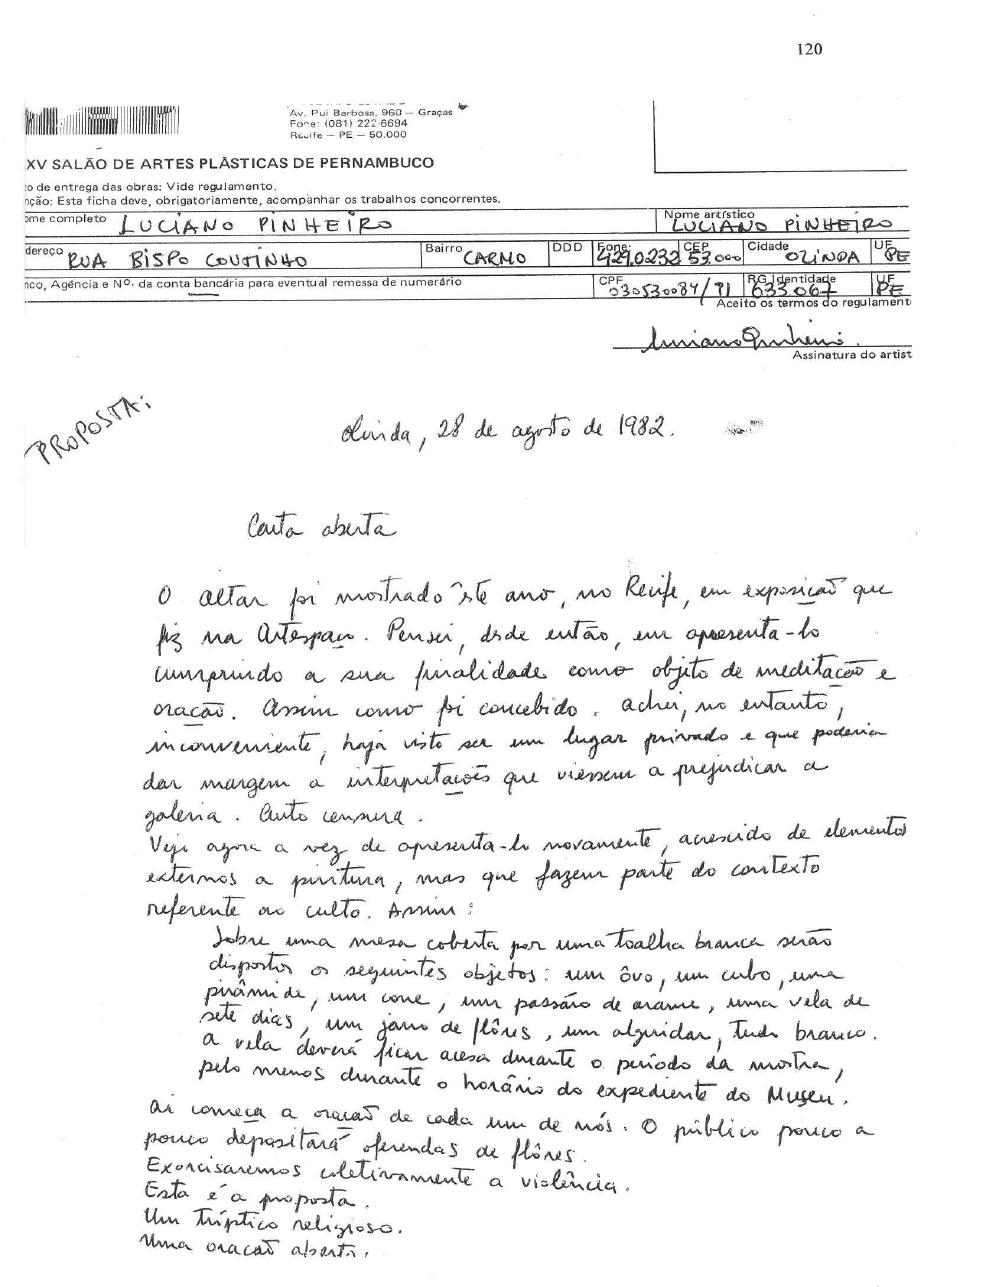 120
Av. Rui Barbosa, 960 — Graças
Fone: (081) 222-6694
Recife — PE — 50.000
XV SALÃO DE ARTES PLÁSTICAS DE PERNAMBUCO
o de entrega das obras: Vide regulamento.
nção: Esta ficha deve, obrigatoriamente, acompanhar os trabalhos concorrentes.
ome completo LUCIANO PINHEIRO Nome artístico LUCIANO PINHEIRO
dereço RUA BISPO COUTINHO Bairro CARMO DDD Fone: 429.0232 CEP 53.000 Cidade OLINDA UF PE
nco, Agência e Nº. da conta bancária para eventual remessa de numerário CPF 030530084/91 RG Identidade 633.067 UF PE
Aceito os termos do regulament
Luciano Pinheiro.
Assinatura do artist
PROPOSTA:
Olinda, 28 de agosto de 1982.
Carta aberta
O altar foi mostrado êste ano, no Recife, em exposição que
fiz na Artespaço. Pensei, desde então, em apresenta-lo
cumprindo a sua finalidade como objeto de meditação e
oração. Assim como foi concebido. Achei, no entanto,
inconveniente, haja visto ser um lugar privado e que poderia
dar margem a interpretações que viessem a prejudicar a
galeria. Auto censura.
Vejo agora a vez de apresenta-lo novamente, acrescido de elementos
externos a pintura, mas que fazem parte do contexto
referente ao culto. Assim:
Sobre uma mesa coberta por uma toalha branca serão
dispostos os seguintes objetos: um ôvo, um cubo, uma
pirâmide, um cone, um passáro de arame, uma vela de
sete dias, um jarro de flôres, um alguidar, tudo branco.
A vela deverá ficar acesa durante o período da mostra,
pelo menos durante o horário do expediente do Museu.
Aí começa a oração de cada um de nós. O público pouco a
pouco depositará oferendas de flôres.
Exorcisaremos coletivamente a violência.
Esta é a proposta.
Um tríptico religioso.
Uma oração aberta.